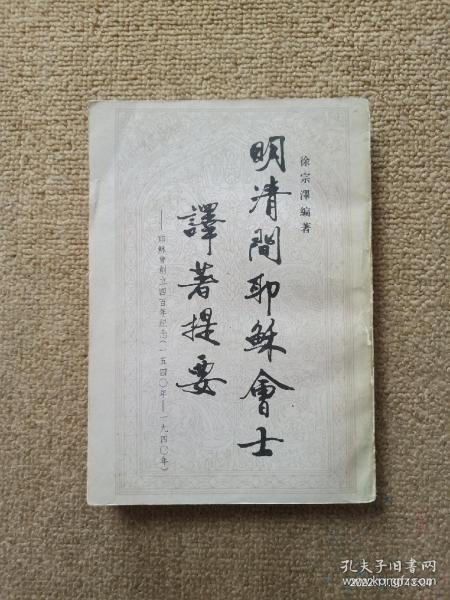 徐宗澤編著
明清間耶穌會士
譯著提要
——耶穌會創立四百年紀念(一五四〇年——一九四〇年)
孔夫子旧书网